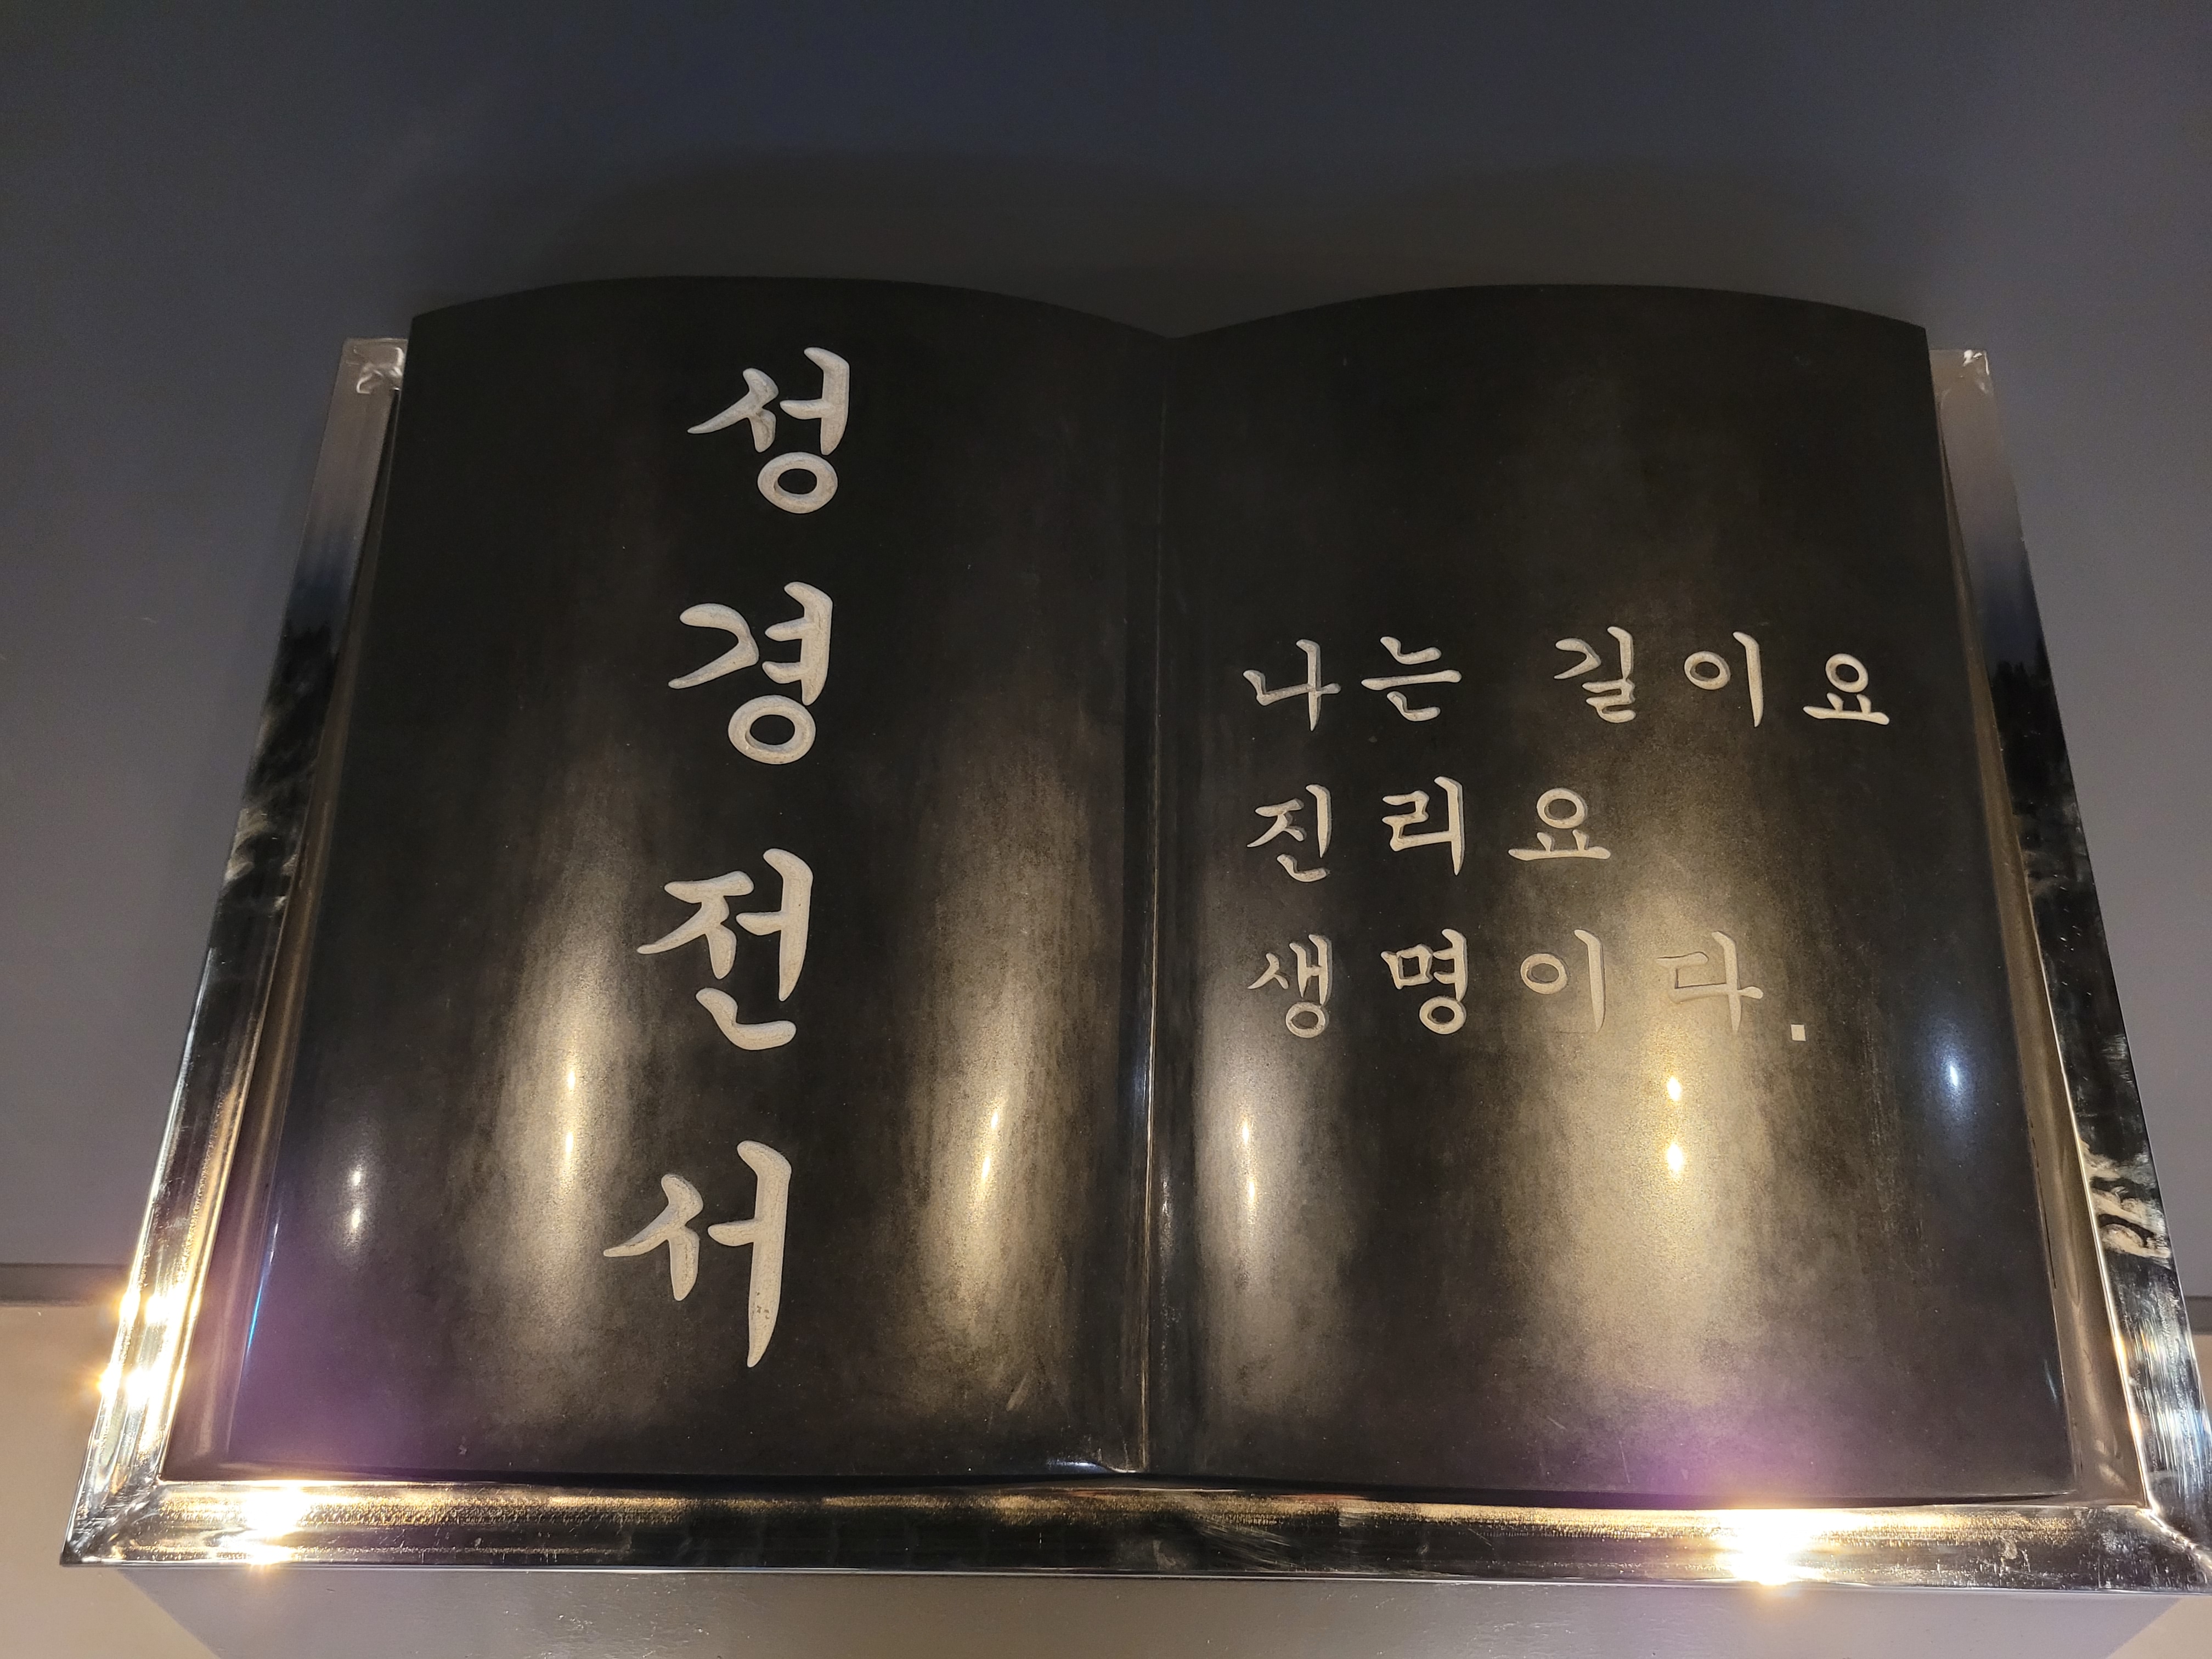 성경전서
나는 길이요
진리요
생명이라.